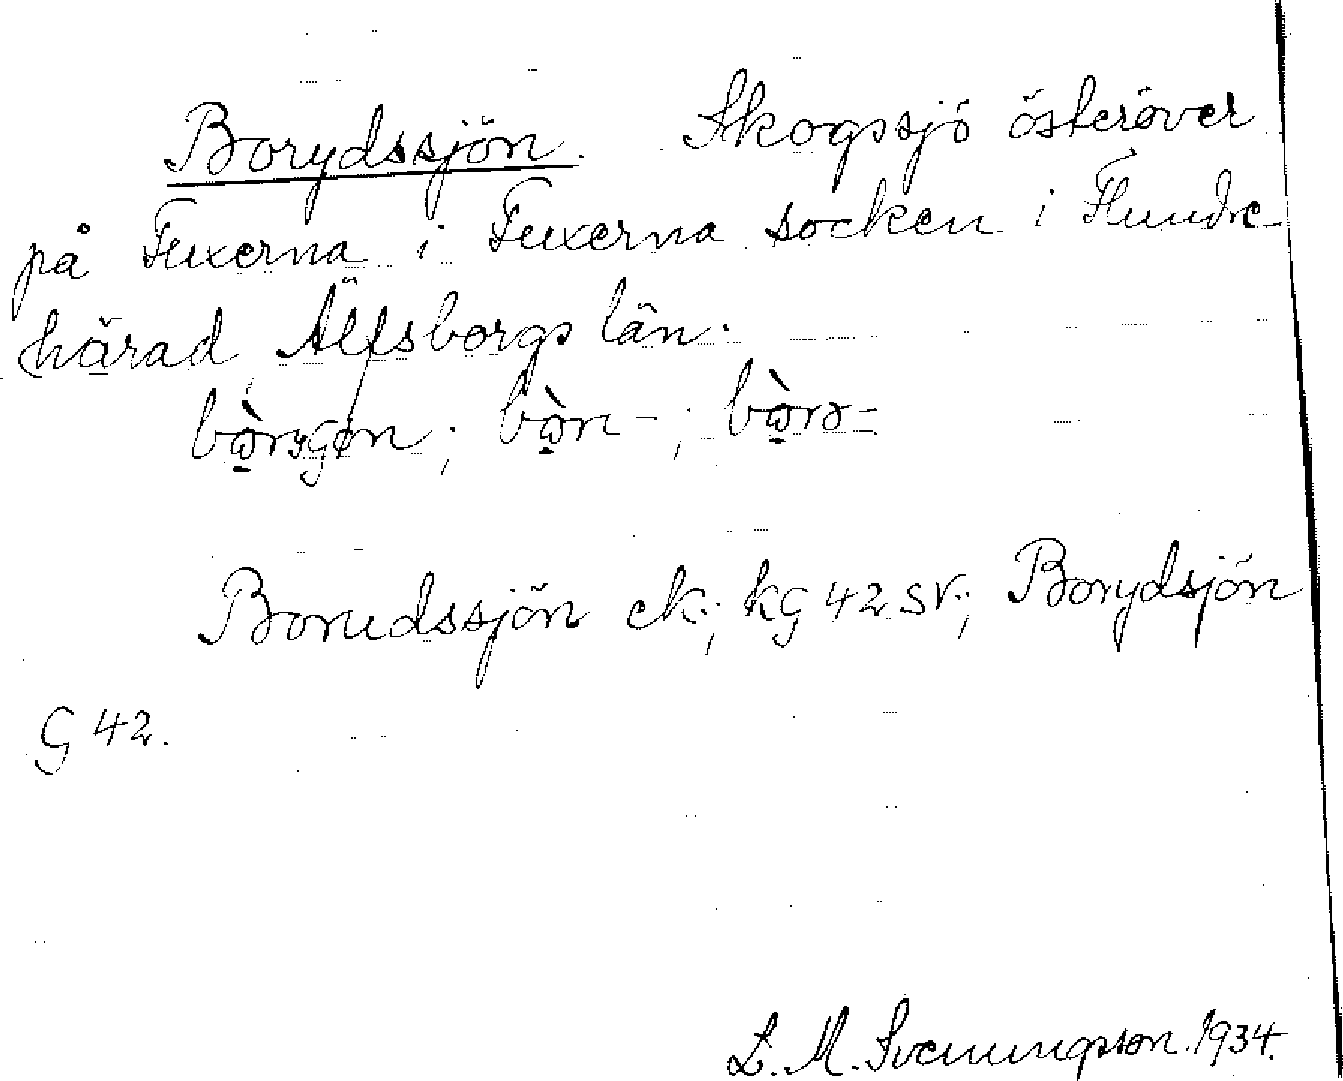 Borydssjön. Skogssjö österöver
på Fuxerna i Fuxerna socken i Flundre-
härad Älfsborgs län.
Borudssjön ek; kG 42 SV; Borydsjön
G 42.
L. M. Svenungsson. 1934.